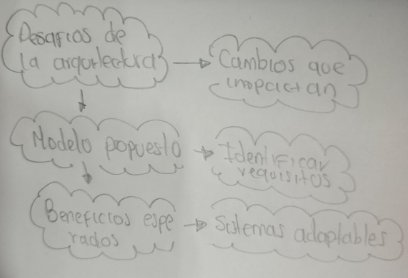 Desafios de
la arquitectura
Cambios que
impactan
Modelo propuesto
Identificar
requisitos
Beneficios espe
rados
Sistemas adaptables